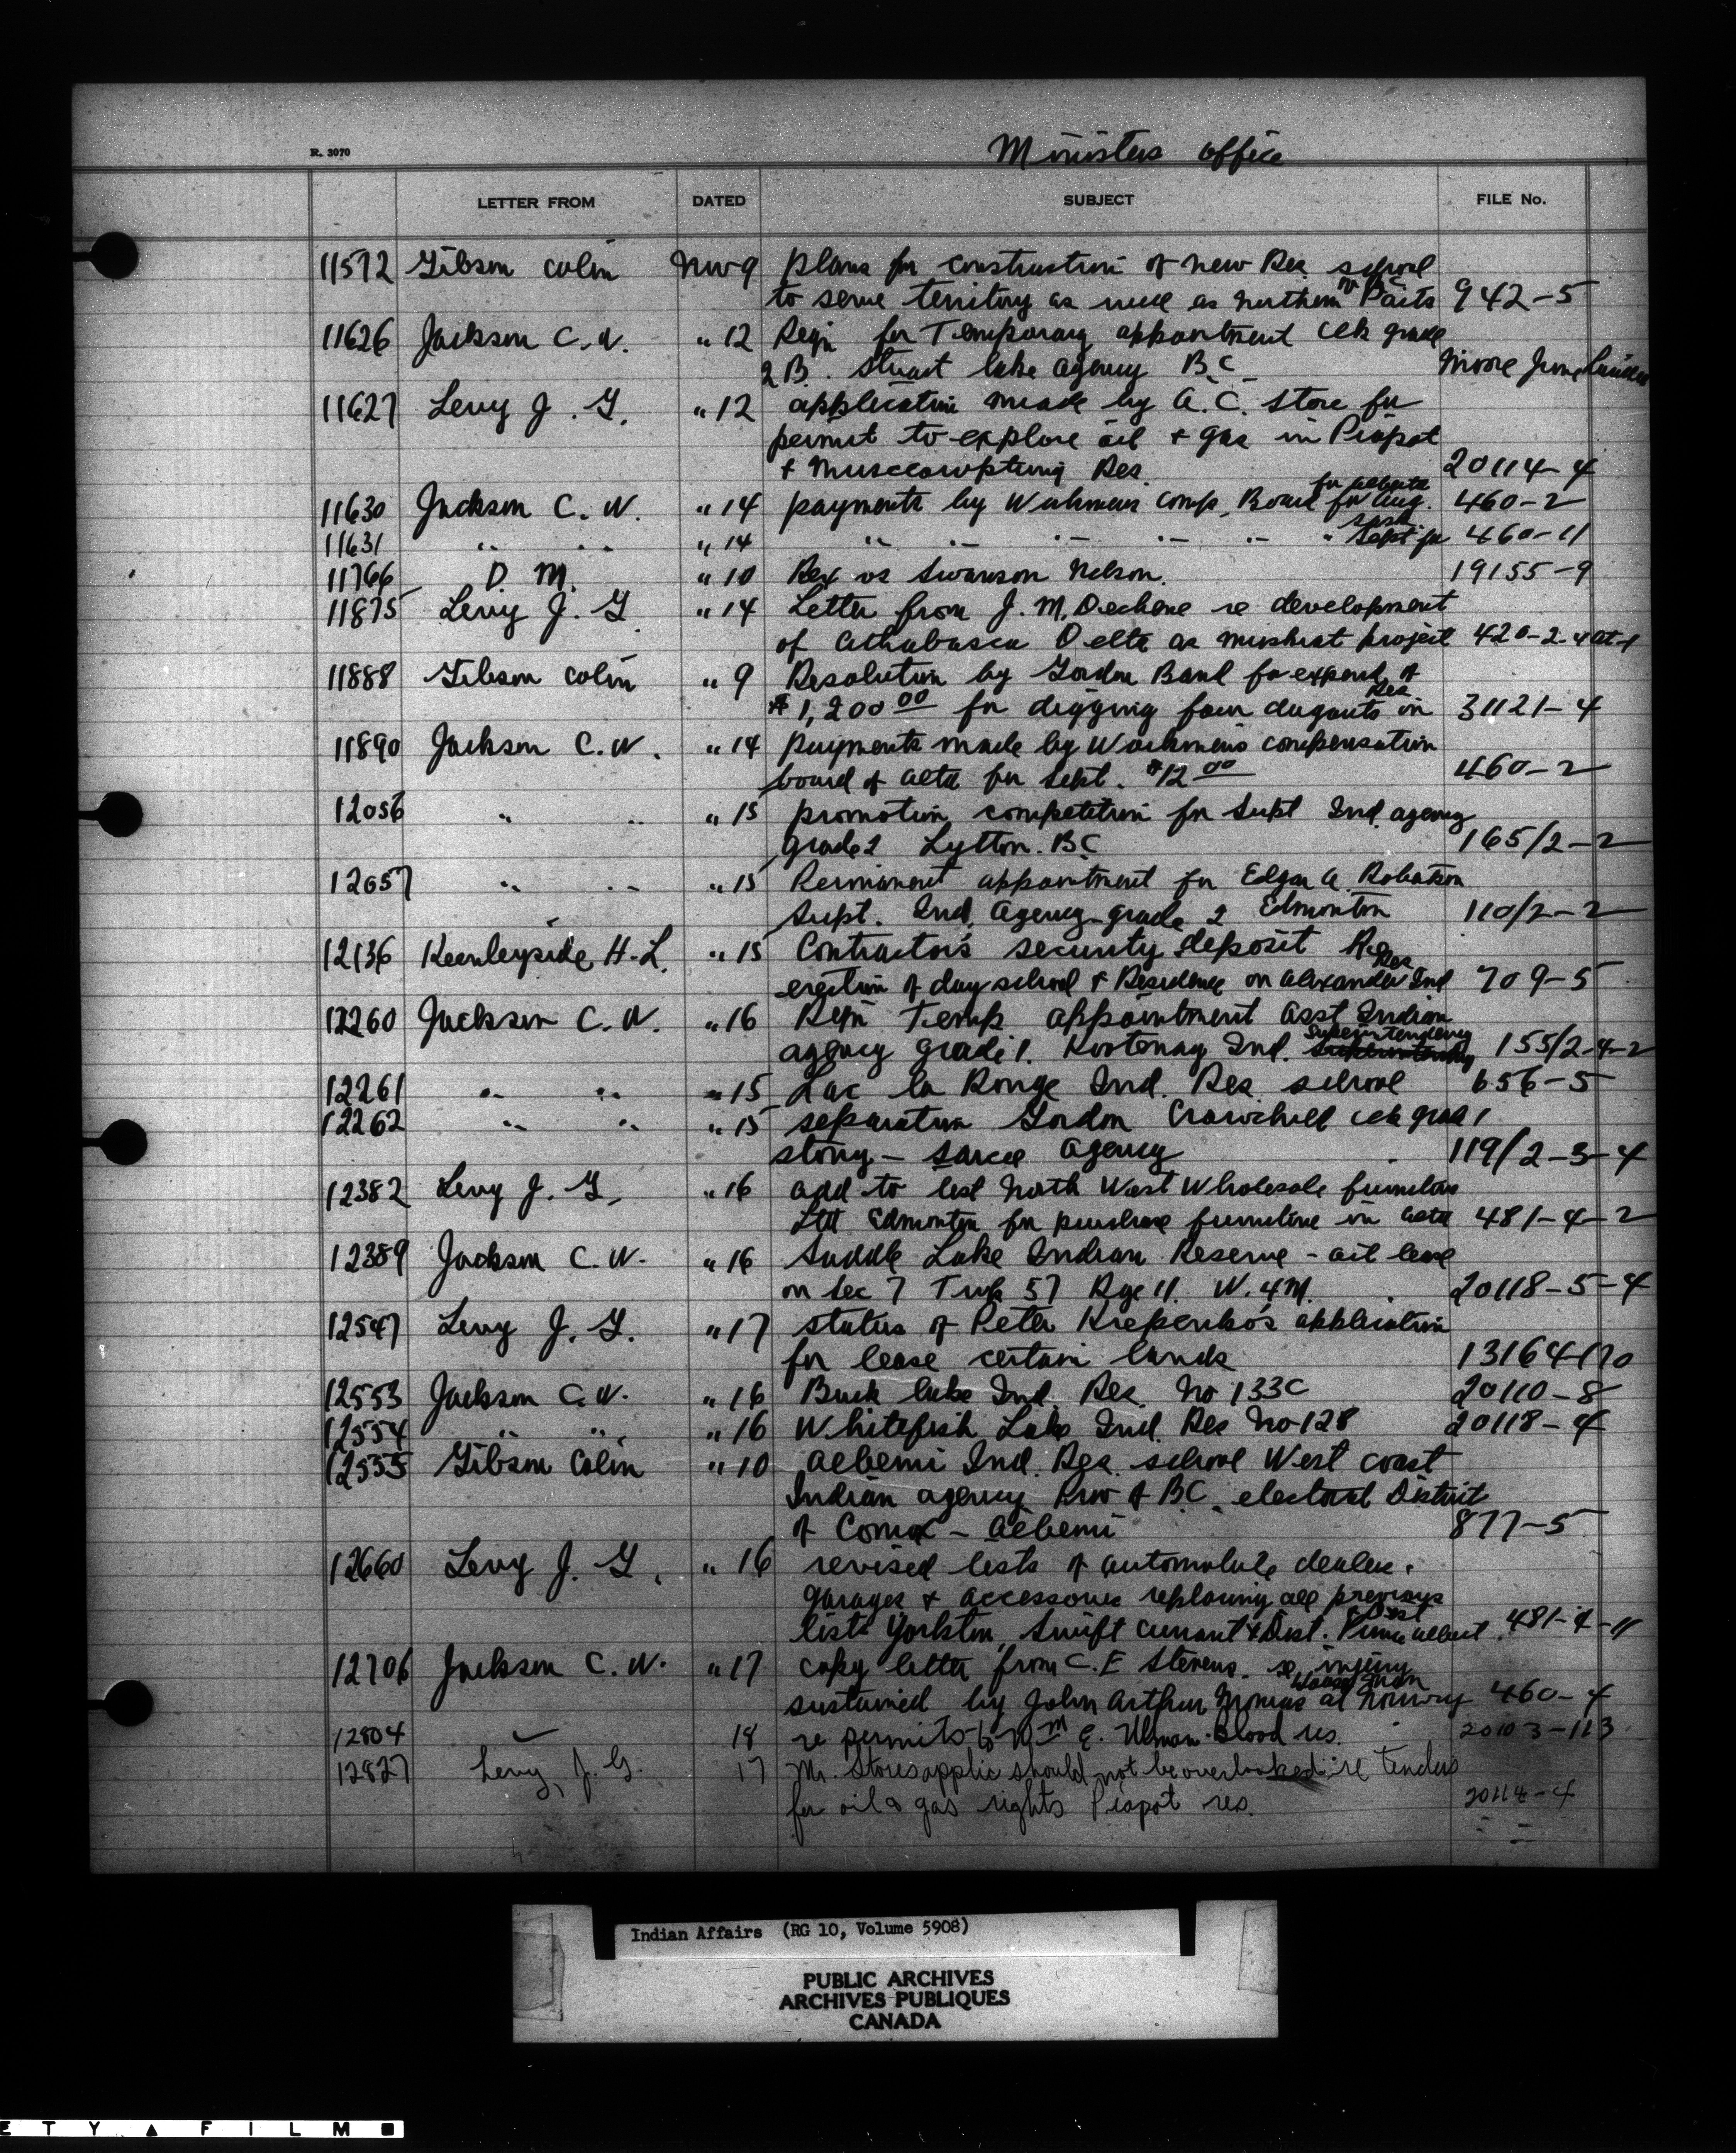 R. 3070
Ministers office
LETTER FROM DATED SUBJECT FILE No.
11572 Gibson Colin Nov 9 plans for construction of new Res. school
to serve territory as well as northern Parts of BC 942-5
11626 Jackson C. W. " 12 Reqn for Temporary appointment clk grade
2B. Stuart lake agency B.C. Moore June
11627 Levy J. G. " 12 application made by A. C. Store for
permit to explore oil & gas in Piapot
& Muscowpetung Res. 20114-4
11630 Jackson C. W. " 14 payments by Workmens Comp. Board for Aug. for Alberta 460-2
11631 " " " 14 " " " " " " Sept for Sask 460-11
11766 D. M. " 10 Rex vs Swanson Nelson. 19155-9
11875 Levy J. G. " 14 Letter from J. M. Dechene re development
of Athabasca Delta as muskrat project 420-2-4 at-1
11888 Gibson Colin " 9 Resolution by Gordon Band for expend. of
$1,200 00 for digging four dugouts in Res 31121-4
11890 Jackson C. W. " 14 payments made by Workmens compensation
board of alta for Sept. $12 00 460-2
12056 " " " 15 promotion competition for Supt Ind. agency
grade 2 Lytton. B.C 165/2-2
12057 " " " 15 Permanent appointment for Edgar A. Robertson
Supt. Ind. Agency grade 2 Edmonton 110/2-2
12136 Keenleyside H. L. " 15 Contractor's security deposit Re
erection of day school & Residence on Alexander Ind Res 709-5
12260 Jackson C. W. " 16 Reqn Temp appointment asst Indian
agency grade 1. Kootenay Ind. Superintendency 155/2-4-2
12261 " " " 15 Lac la Ronge Ind. Res. school 656-5
12262 " " " 15 separation Gordon Crowchild clk grad 1
stony - sarcee Agency 119/2-3-4
12382 Levy J. G. " 16 add to list North West Wholesale furniture
Ltd Edmonton for purchase furniture in alta 481-4-2
12389 Jackson C. W. " 16 Saddle Lake Indian Reserve - oil lease
on Sec 7 Twp 57 Rge 11. W. 4 M. 20118-5-4
12547 Levy J. G. " 17 status of Peter Krepenko's application
for lease certain lands 13164-170
12553 Jackson C. W. " 16 Buck lake Ind. Res. No 133C 20110-8
12554 " " " 16 Whitefish Lake Ind. Res No-128 20118-4
12555 Gibson Colin " 10 Alberni Ind. Res. school West coast
Indian agency Prov of B.C. electoral District
of Comox - Alberni 877-5
12660 Levy J. G. " 16 revised lists of automobile dealers.
garages & accessories replacing all previous
lists Yorkton, Swift current & Dist. Prince Albert & Dist 481-4-11
12706 Jackson C. W. " 17 copy letter from C. E Stevens. re injury
sustained by John Arthur at Norway 460-4
12804 " 18 re permits to Wm E. Ulman. Blood res. 20103-113
12827 Levy, J. G. 17 Mr. Stores applic should not be overlooked re tenders
for oil & gas rights Piapot res. 20114-4
Indian Affairs (RG 10, Volume 5908)
PUBLIC ARCHIVES
ARCHIVES PUBLIQUES
CANADA
ETY ▲ FILM ■